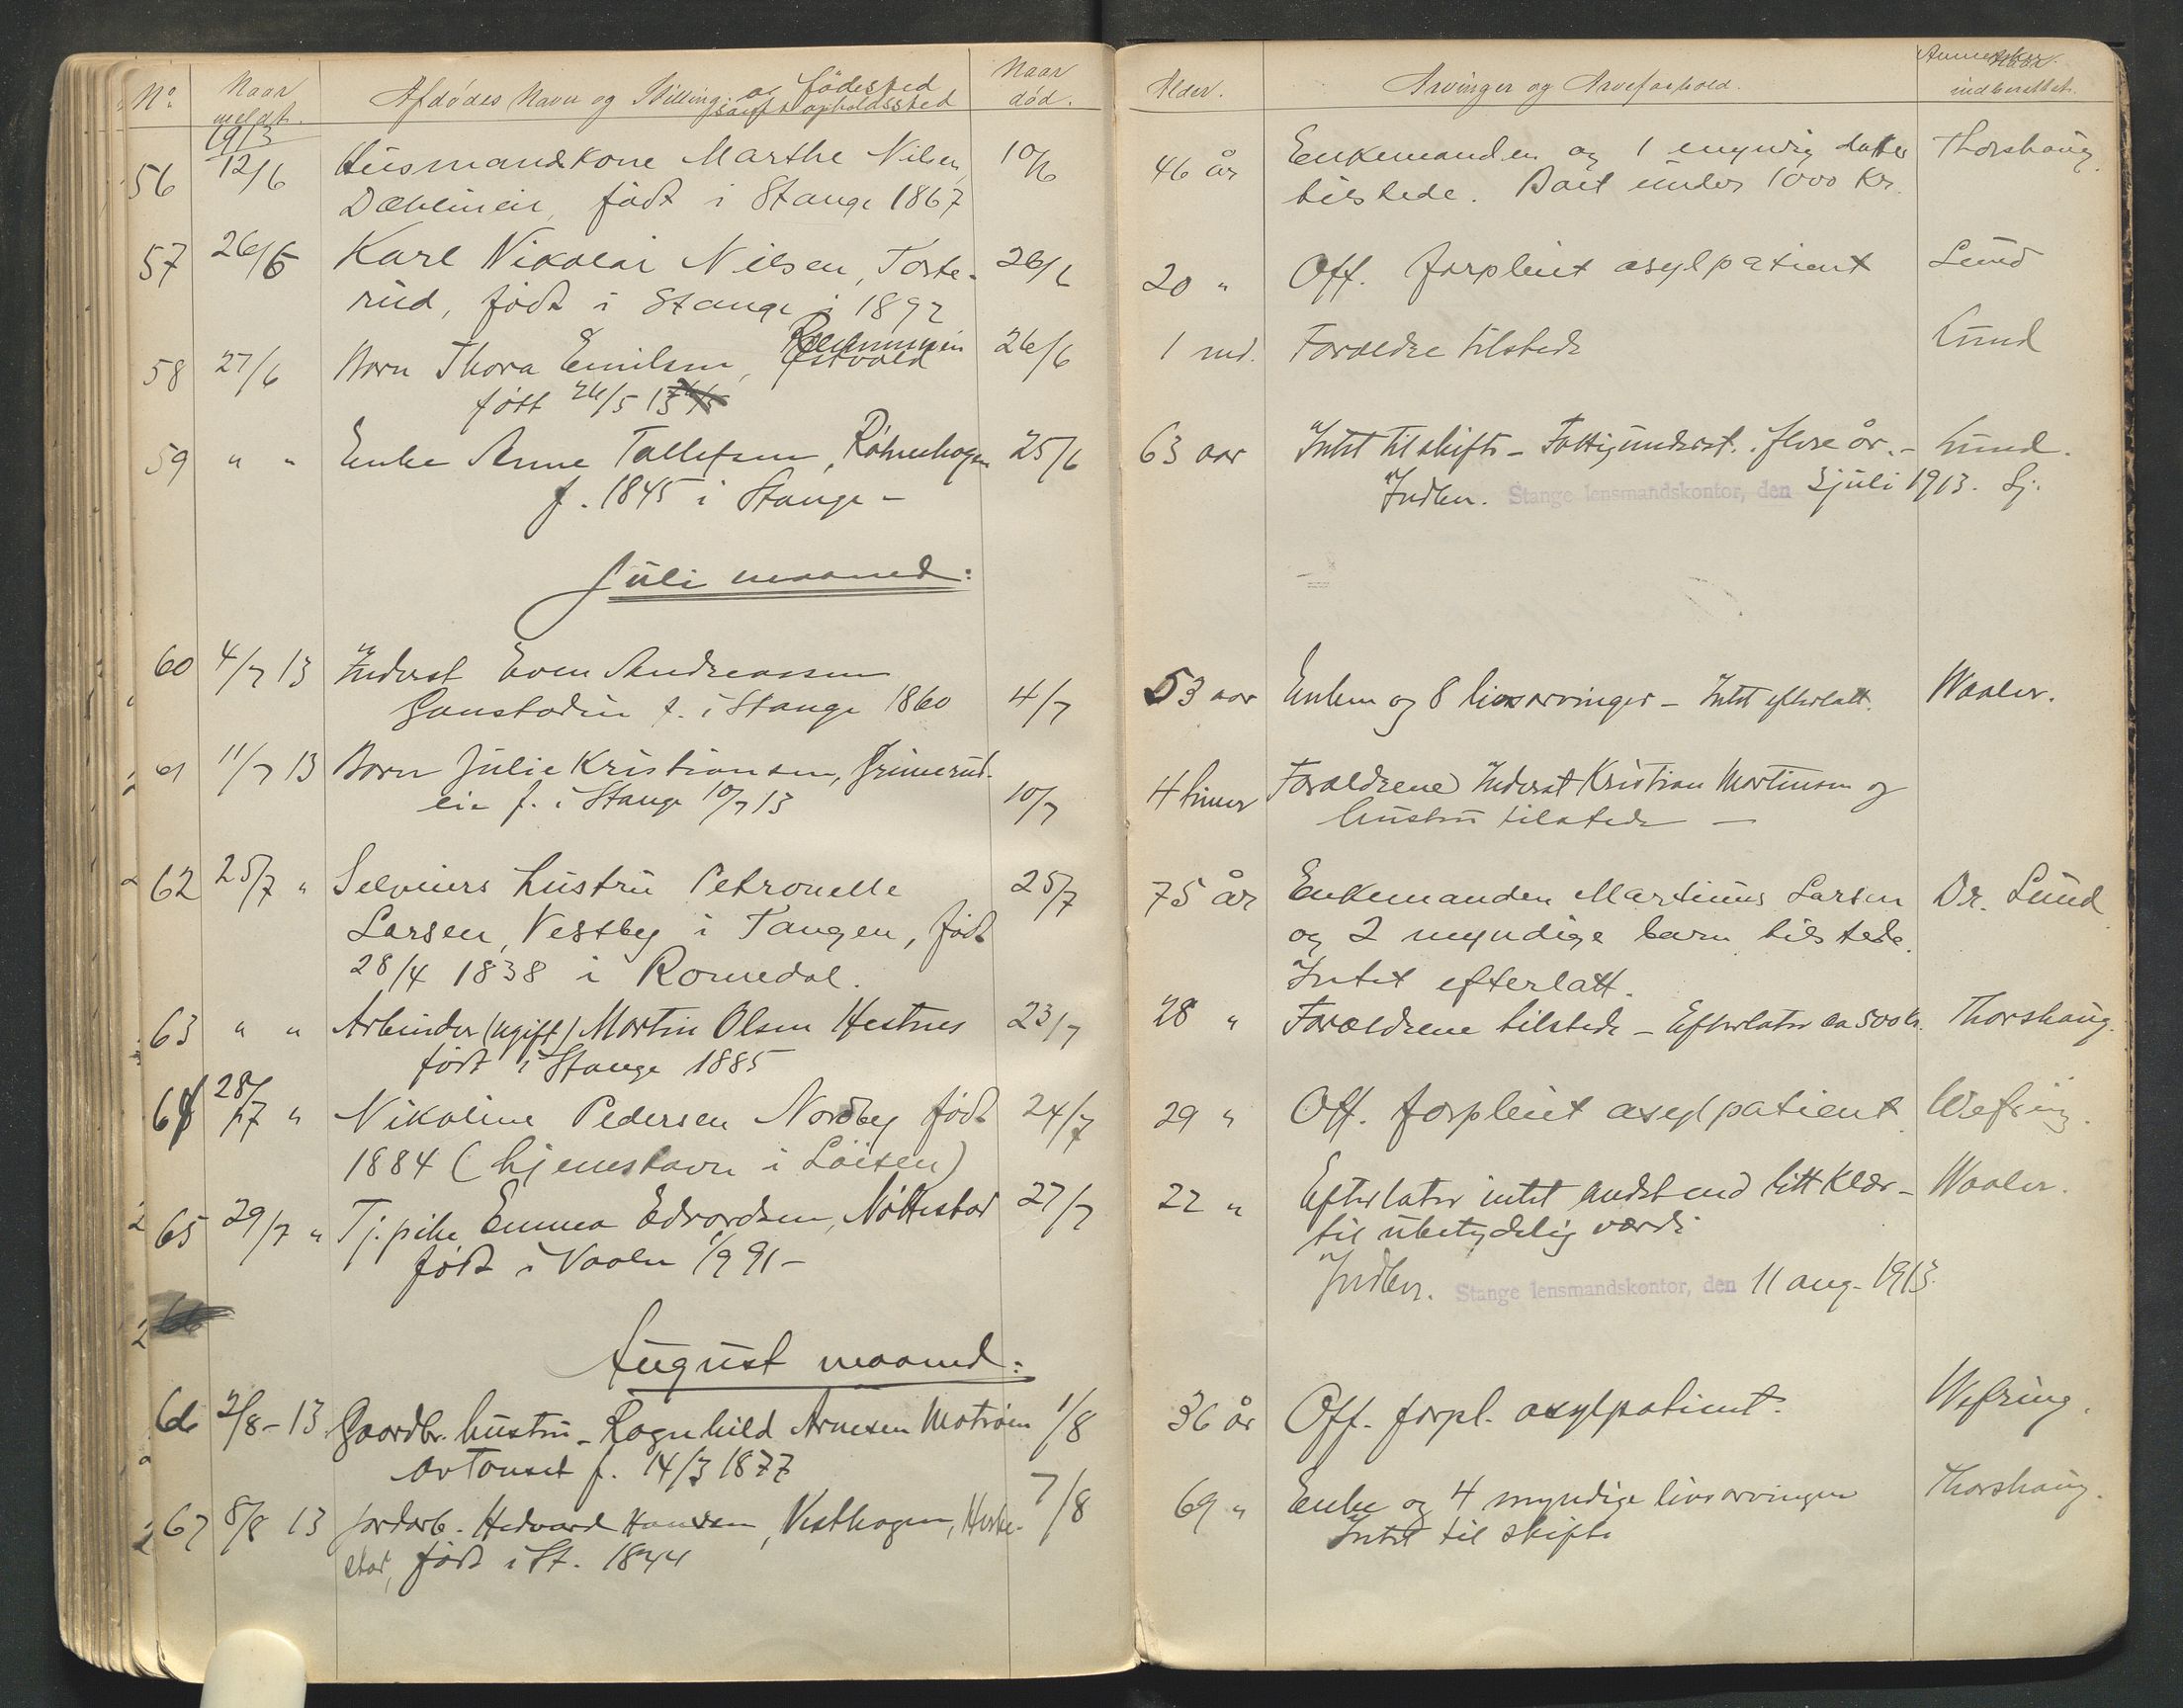 No. Naar meldt. Afdødes Navn og Stilling og fødested samt opholdssted Naar død. Alder. Arvinger og Arveforhold. Naar indberettet.
1913
56 12/6 Husmandskone Marthe Nilsen 10/6 46 år Enkemanden og 1 datter Thorshaug.
født i Stange 1867 tilstede. Boet under 1000 Kr.
57 26/6 Karl Nikolai Nilsen, Torte- 26/6 20 " Off. forpleiet asylpatient Lund
rud, født i Stange i 1892
58 27/6 Barn Thora Emilsen, Østvold 26/6 1 md. Forældre tilstede Lund
født 26/5 13
59 " " Enke Anne Tollefsen, 25/6 63 aar Intet til skifte - Fattigunderst. i flere år. - Lund.
f. 1845 i Stange - Indber. Stange lensmandskontor, den 3 juli 1913. Sj.
Juli maaned:
60 4/7 13 Inderst Even Andreassen
f. i Stange 1860 4/7 53 aar Enken og 8 livsarvinger - Intet efterlatt. Waaler.
61 11/7 13 Barn Julie Kristiansen, Grimerud-
eie f. i Stange 10/7 13 10/7 4 timer Forældrene Inderst Kristian Martinsen og
hustru tilstede -
62 25/7 " Selveiers hustru Petronelle 25/7 75 år Enkemanden Martinus Larsen Dr. Lund
Larsen, Vestby i Tangen, født og 2 myndige barn tilstede.
28/4 1838 i Romedal. Intet efterlatt.
63 " " Arbeider (ugift) Martin Olsen Hestnes 23/7 28 " Forældrene tilstede - Efterlater ca 500 kr. Thorshaug.
født i Stange 1885
64 28/7 " Nikoline Pedersen Nordby født 24/7 29 " Off. forpleiet asylpatient. Wefring.
1884 (hjemstavn i Löiten)
65 29/7 " Tj.pike Emma Edvardsen, Nøttestad 27/7 22 " Efterlater intet andet end litt klær - Waaler.
født i Vaaler 1/9 91 - til ubetydelig værdi
Indber. Stange lensmandskontor, den 11 aug. 1913.
August maaned:
66 2/8 - 13 Gaardbr. hustru - Ragnhild Arnesen Motrøen 1/8 36 år Off. forpl. asylpatient. Wefring.
av Tønset f. 14/3 1877
67 8/8 13 Jordarb. Hedvard Hansen, Vesthagen, 7/8 69 " Enke og 4 myndige livsarvinger Thorshaug.
født i St. 1844 Intet til skifte